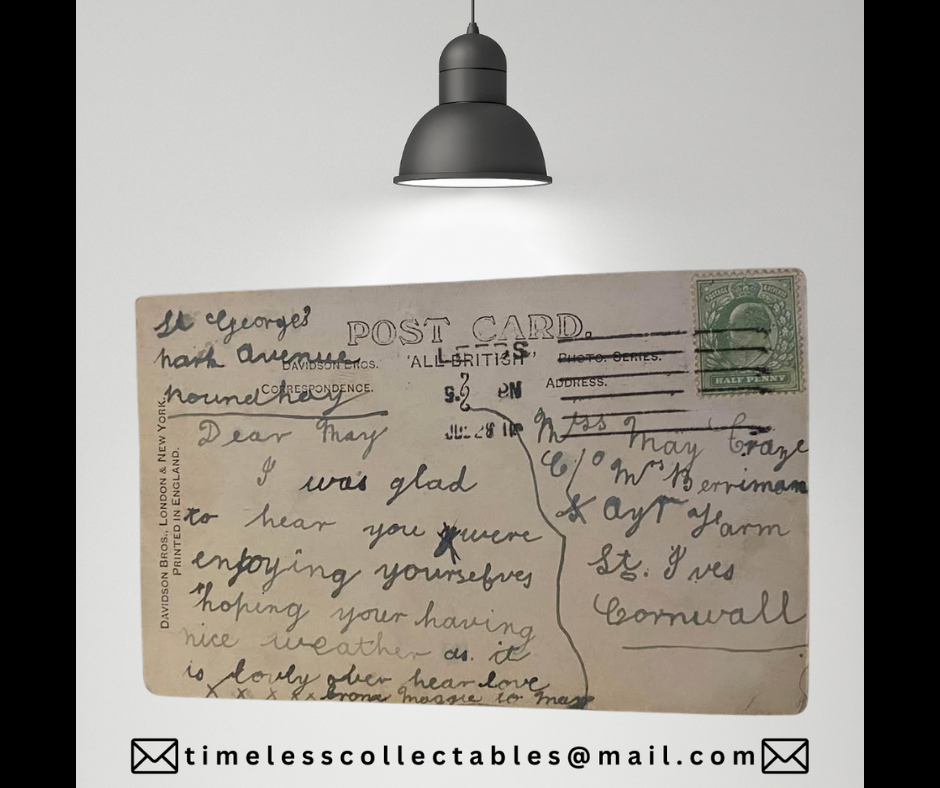 St Georges
park Avenue
Roundhay
POST CARD.
DAVIDSON BROS. 'ALL-BRITISH' PHOTO. SERIES.
CORRESPONDENCE. ADDRESS.
DAVIDSON BROS., LONDON & NEW YORK.
PRINTED IN ENGLAND.
HALF PENNY
PM
JUL 28
Dear May
I was glad
to hear you were
enjoying yourselfves
hoping your having
nice weather as it
is lovly over hear love
x x x x x from Maggie to May
Miss May
C/o Mrs Berriman
Ayr Farm
St. Ives
Cornwall
timelesscollectables@mail.com